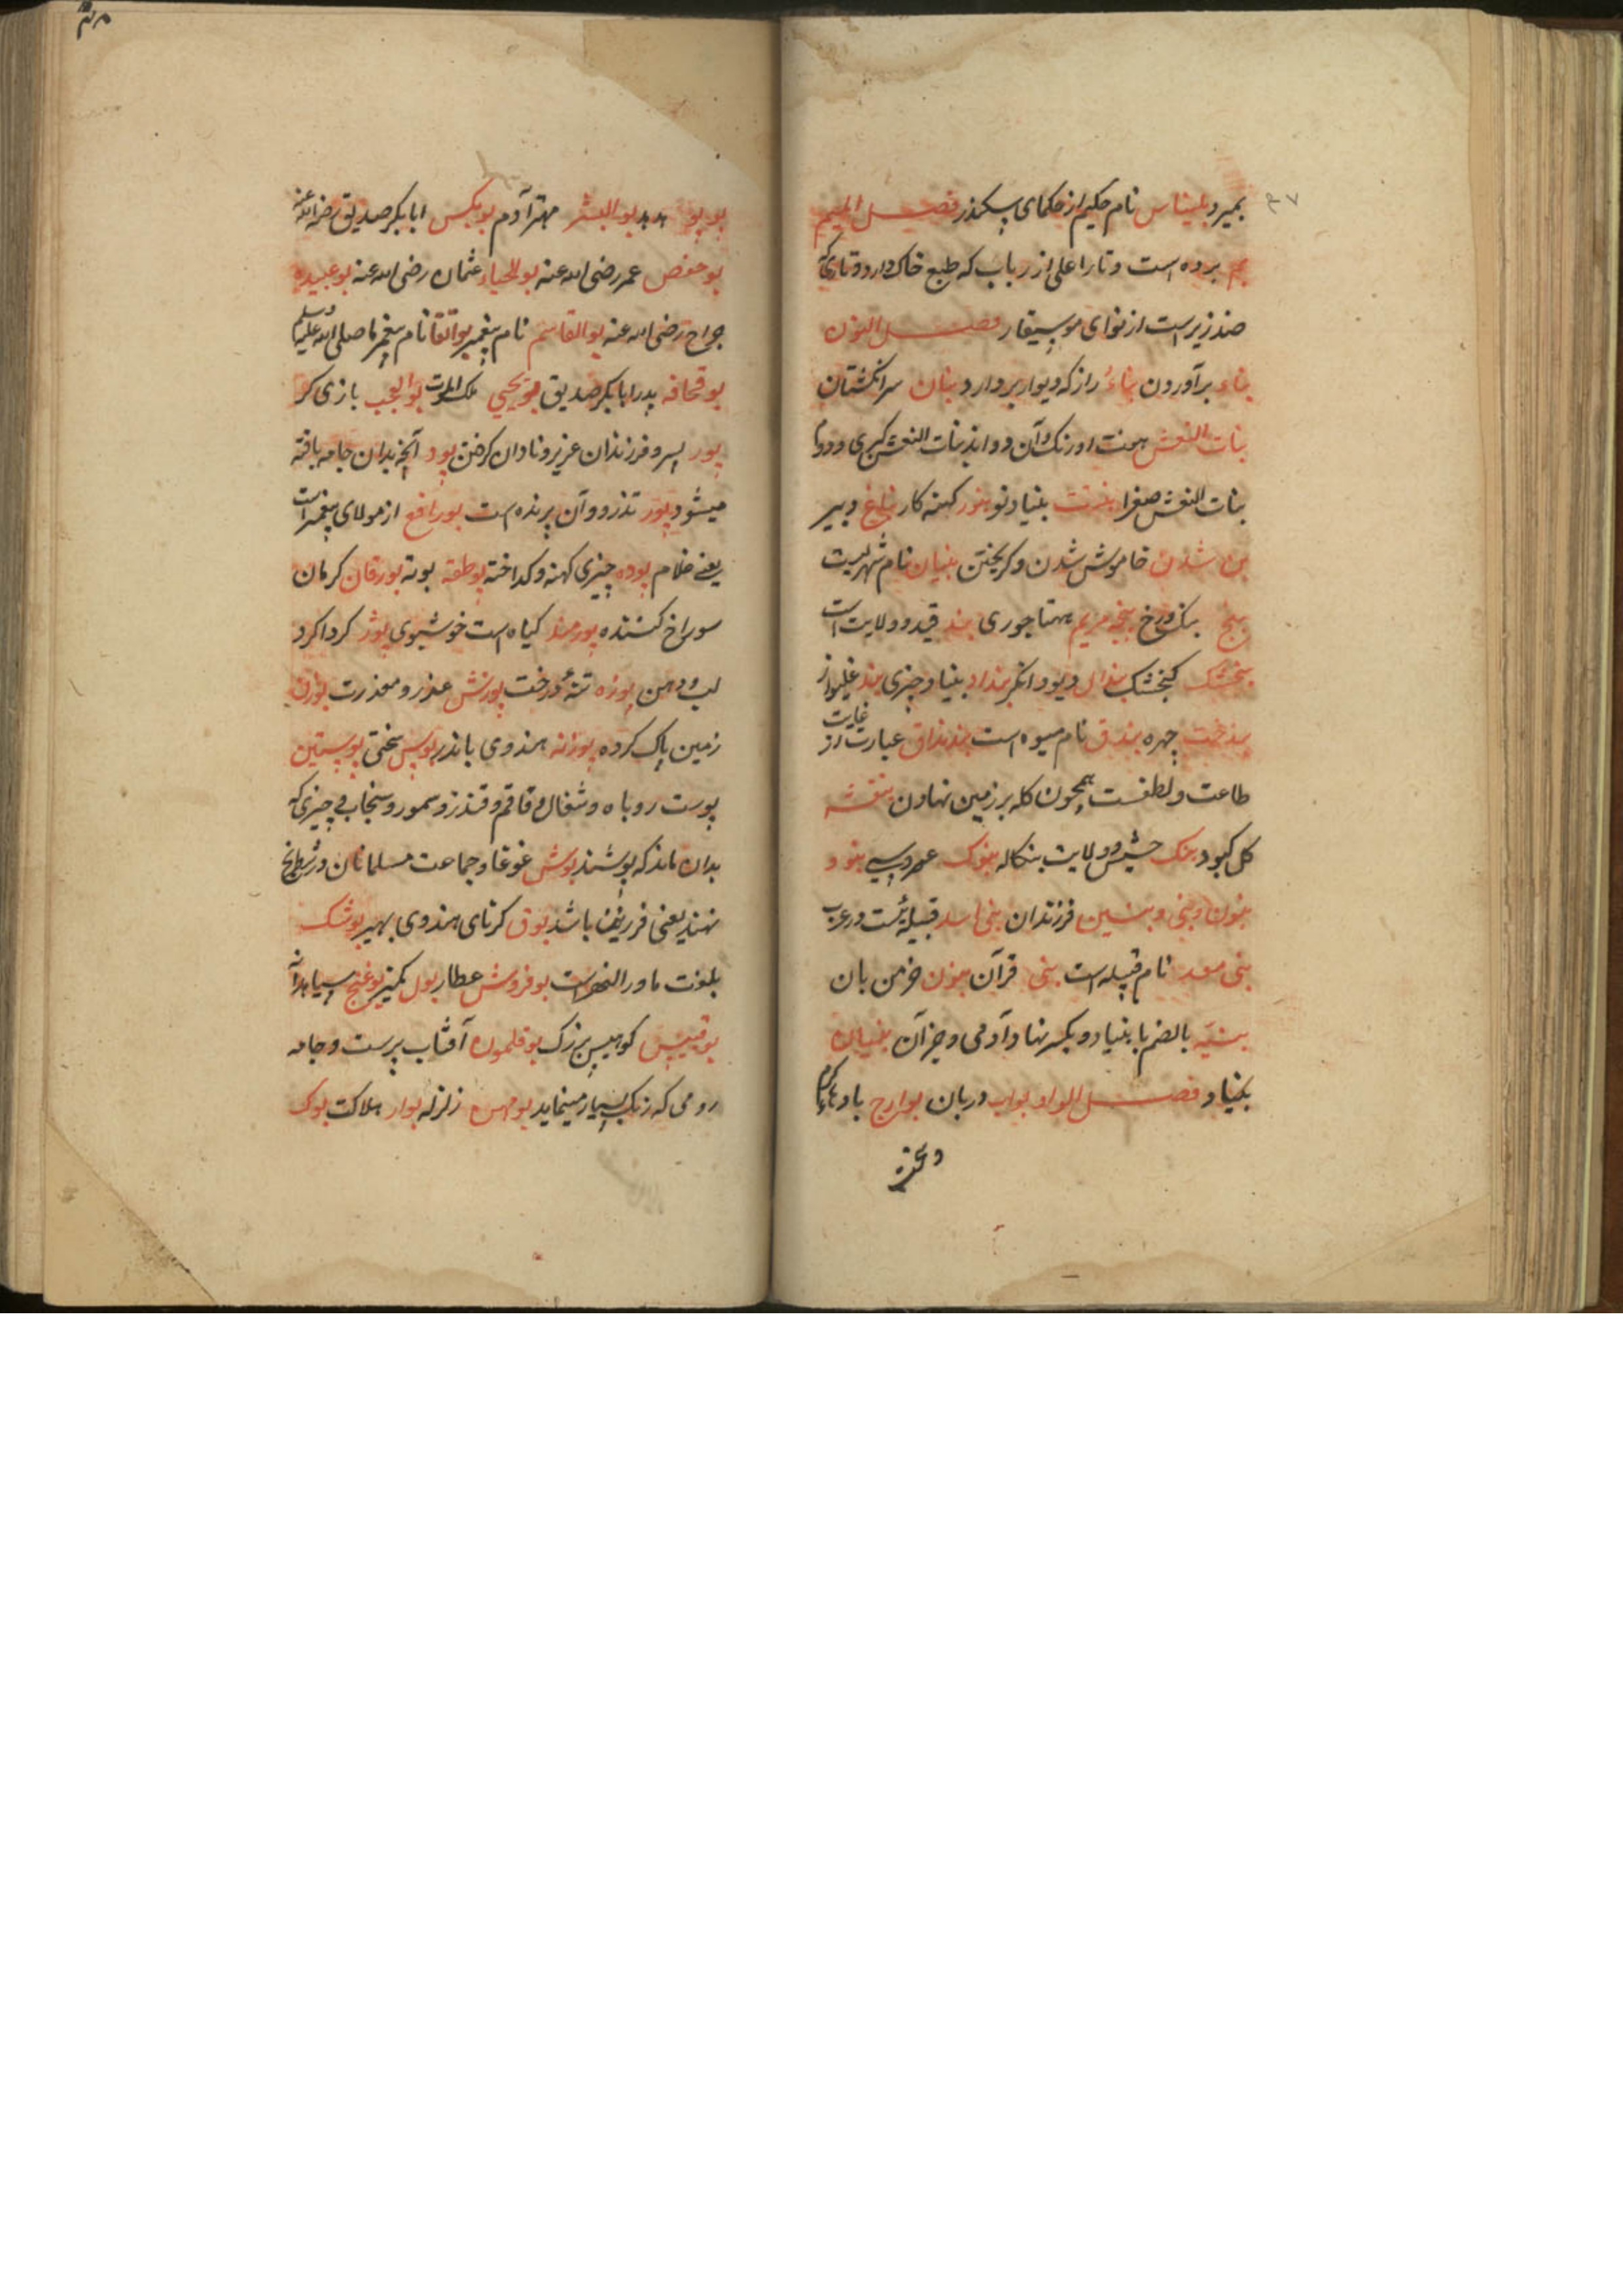 ۴۷
بمیرد بلیناس نام حکیم از حکمای سکندر فصل المیم
بم برده است و تار اعلی از رباب که طبع خاک دارد و تاری که
ضد زیر است از نوای موسیقار فصل النون
بناء برآوردن بناء راز که دیوار بردارد بنان سر انکشتان
بنات النعش هفت اورنک وآن دو اند بنات النعش کبری و دوم
بنات النعش صغرا بنیاد نو کهنه کار دبیر
بن شدن خاموش شدن و کریختن بنیان نام شهریست
بنج بنک و رخ پنجه مریم بند قید و ولایت است
بنجشک کنجشک بنداد بنیاد چیزی بند غلیواز
چهره بندق نام میوه است عبارت از غایت
طاعت و لطفست همچون کله بر زمین نهادن بنفشه
کل کبود بنک حشیش و ولایت بنکاله
بنون و بنی و بنین فرزندان بنی اسد قبیله ئست در عرب
بنی سعد نام قبیله است بنی قرآن خرمن بان
بنیة بالضم بابنیاد و بکسر نهاد آدمی و جز آن بنیان
بنیاد فصل الواو بواب دربان بوارح بادهاء کرم
بوبو هدهد بو البشر مهتر آدم بوبکر ابابکر صدیق رضی الله عنه
بوحفص عمر رضی الله عنه عثمان رضی الله عنه بوعبیده
جراح رضی الله عنه بو القاسم نام پیغمبر نام پیغمبر ما صلی الله علیه وسلم
بوقحافه پدر ابابکر صدیق بویحیی ملک الموت بوالعجب بازی کر
پور پسر و فرزندان عزیز و نادان کرفتن پود آنچه بدان جامه بافته
میشود پور تذرو و آن پرنده است بورافع از مولای پیغمبر است
یعنی غلام پوده چیزی کهنه و کداخته بوطقه بوته بورقان کرمان
سوراخ کننده کیاه است خوشبوی پوز کرداکرد
لب و دهن پوزه تنه درخت پوزش عذر و معذرت
زمین پاک کرده پوزنه هندوی باندر سختی پوستین
پوست روباه و شغال و قاقم و قندز و سمور و سنجاب و چیزی که
بدان ماند که پوشند بوش غوغا و جماعت مسلمانان و شطرنج
نهند یعنی باشد بوق کرنای هندوی بهیر پوشک
بلغت ماورالنهر است بوفروش عطار بول کمیز بوغنج سیاه دانه
بوقبیس کوهیس بزرک بوقلمون آفتاب پرست و جامه
رومی که رنک بسیار مینماید بومهن زلزله بوار هلاکت بوک